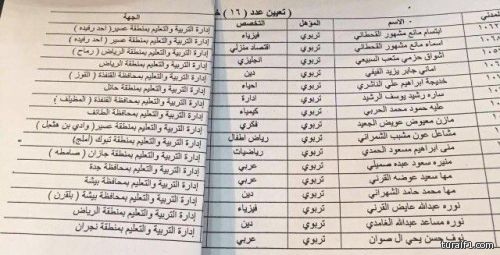 ( تعيين عدد ( ١٦ )
الأسم المؤهل التخصص الجهة
ابتسام مانع مشهور القحطاني تربوي فيزياء إدارة التربية والتعليم بمنطقة عسير( احد رفيده )
اسماء مانع مشهور القحطاني تربوي اقتصاد منزلي إدارة التربية والتعليم بمنطقة عسير( احد رفيده )
اشواق حزمي متعب السبيعي تربوي انجليزي إدارة التربية والتعليم بمنطقة الرياض ( رماح )
اماني جابر يزيد الفيفي تربوي دين إدارة التربية والتعليم بمنطقة الرياض
خديجة ابراهيم علي الناشري تربوي احياء إدارة التربية والتعليم بمحافظة القنفذة ( القوز )
ساره رشيد يوسف الرشيد تربوي ادارة إدارة التربية والتعليم بمنطقة حائل
عليه حمود محمد الحربي تربوي كيمياء إدارة التربية والتعليم بمحافظة القنفذة ( المظيلف )
مازن معيوض عويض الجعيد تربوي فكري إدارة التربية والتعليم بمحافظة الطائف
مشاعل عون مشبب الشمراني تربوي رياض اطفال إدارة التربية والتعليم بمنطقة عسير( وادي بن هشبل )
منى ابراهيم مسعود الحمدي تربوي رياضيات إدارة التربية والتعليم بمنطقة تبوك (أملج)
منيره سعود عبده صميلي تربوي عربي إدارة التربية والتعليم بمنطقة جازان ( صامطه )
مها سعيد عوضه القرني تربوي عربي إدارة التربية والتعليم بمحافظة جدة
مها محمد حامد الشهراني تربوي دين إدارة التربية والتعليم بمحافظة بيشة
نوره عبدالله عايض القرني تربوي فيزياء إدارة التربية والتعليم بمحافظة بيشة ( بلقرن )
نوره مساعد عبدالله الغامدي تربوي دين إدارة التربية والتعليم بمنطقة الرياض
نوف حسن يحي ال صوان تربوي عربي إدارة التربية والتعليم بمنطقة نجران